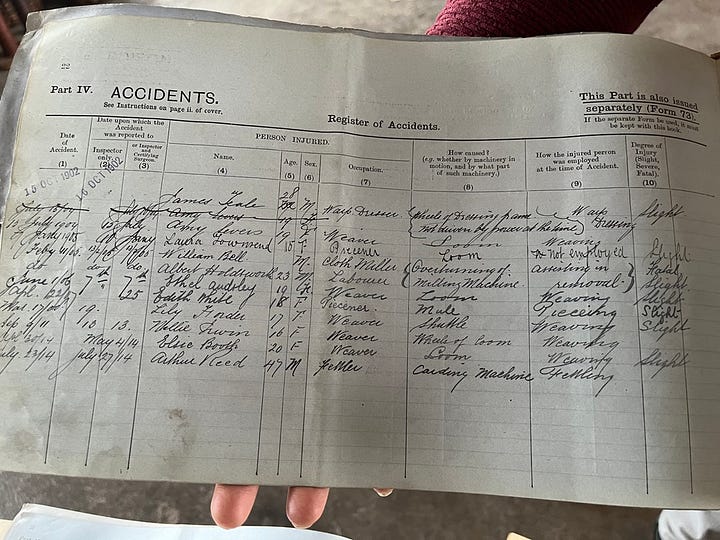 22
Part IV. ACCIDENTS.
See Instructions on page ii. of cover.
Register of Accidents.
This Part is also issued
separately (Form 73).
If the separate Form be used, it must
be kept with this book.
Date of Accident. (1)
Date upon which the Accident was reported to
Inspector only. (2)
or Inspector and Certifying Surgeon. (3)
PERSON INJURED.
Name. (4)
Age. (5)
Sex. (6)
Occupation. (7)
How caused? (e.g. whether by machinery in motion, and by what part of such machinery.) (8)
How the injured person was employed at the time of Accident. (9)
Degree of Injury (Slight, Severe, Fatal). (10)
16 OCT 1902 16 OCT 1902
James 28 M Warp Dresser Wheels of Dressing frame not driven by power at the time Warp Dressing Slight
July 1904 July Amy 19 F Weaver Loom Weaving
Laura Townsend 15 F Piecener Loom not employed Slight
William Bell M. Cloth Miller Overturning of Milling Machine assisting in removal Fatal
do do Albert Holdsworth 23 M Labourer Slight
June 7th 7th Ethel Audsley 19 F Weaver Loom Weaving Slight
25 Edith 18 F Piecener Mule Piecening Slight
Mar. 19. Lily 17 F Weaver Shuttle Weaving Slight
Sep 9/11 10 13. Nellie Irwin 16 F Weaver Wheels of Loom Weaving
May 4/14 Elsie Booth 20 F Weaver Loom Weaving Slight
July 23/14 July 27/14 Arthur Reed 47 M Fettler Carding Machine Fettling